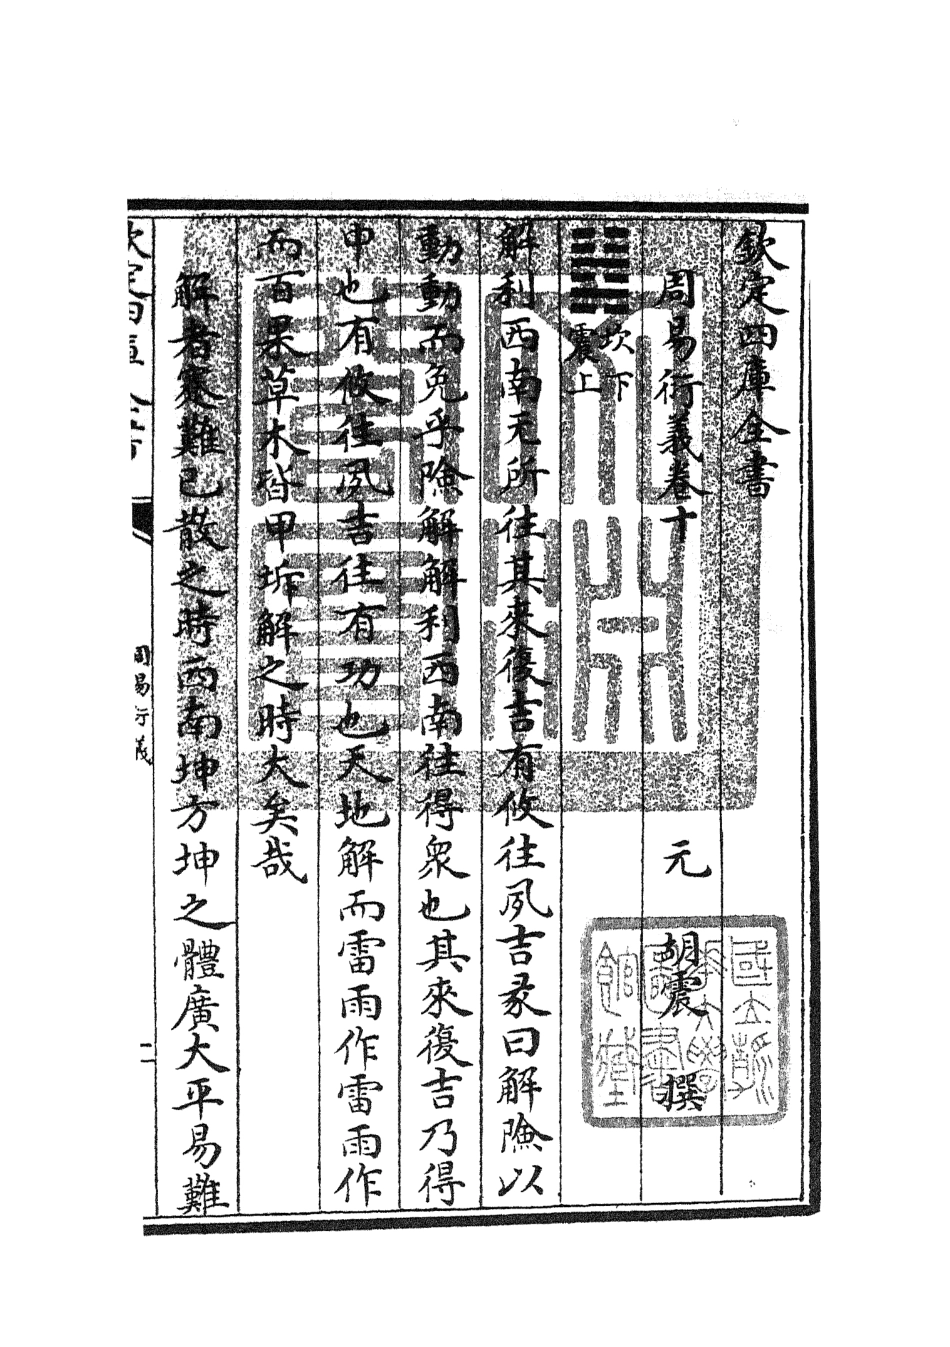 欽定四庫全書
周易衍義卷十　元　胡震　撰
坎下
震上
解利西南无所往其來復吉有攸往夙吉彖曰解險以
動動而免乎險解解利西南往得衆也其來復吉乃得
中也有攸往夙吉往有功也天地解而雷雨作雷雨作
而百果草木皆甲坼解之時大矣哉
解者蹇難已散之時西南坤方坤之體廣大平易難
欽定四庫全書
周易衍義